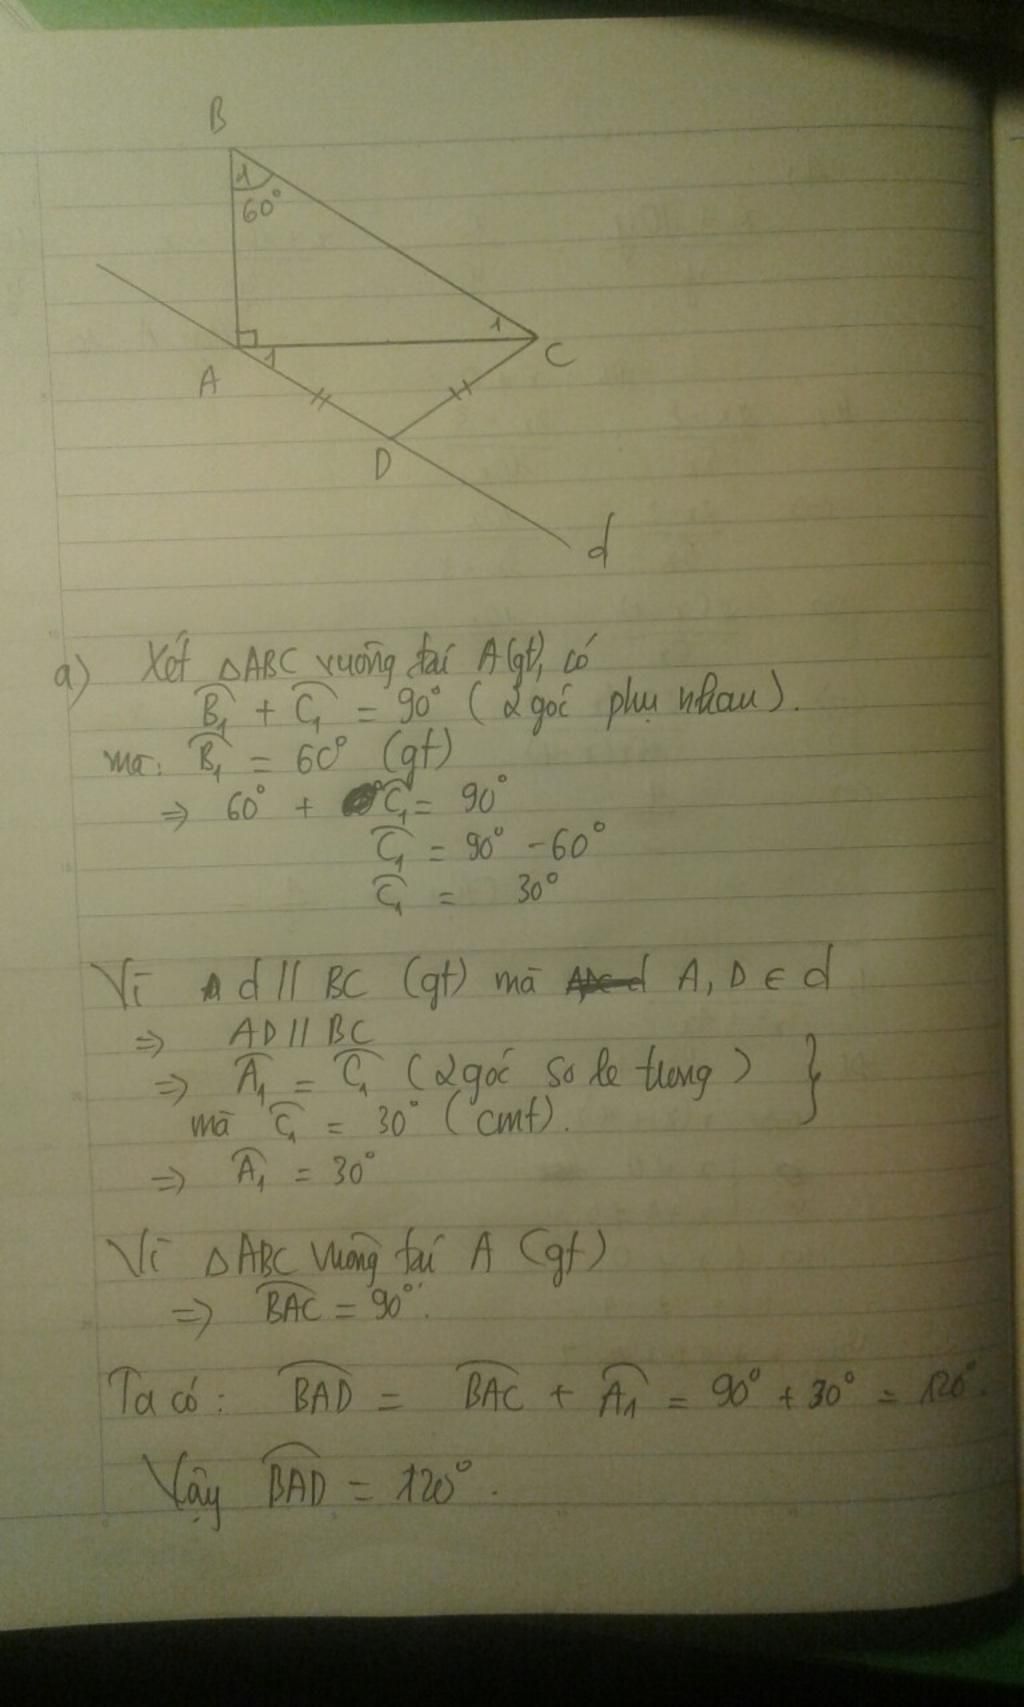 B
1
60°
1
A
1
C
D
d
a) Xét △ABC vuông tại A (gt), có
B̂₁ + Ĉ₁ = 90° (2 góc phụ nhau).
mà: B̂₁ = 60° (gt)
⇒ 60° + Ĉ₁ = 90°
Ĉ₁ = 90° - 60°
Ĉ₁ = 30°
Vì d // BC (gt) mà A, D ∈ d
⇒ AD // BC
⇒ Â₁ = Ĉ₁ (2 góc so le trong) }
mà Ĉ₁ = 30° (cmt).
⇒ Â₁ = 30°
Vì △ABC vuông tại A (gt)
⇒ B͡AC = 90°.
Ta có: B͡AD = B͡AC + Â₁ = 90° + 30° = 120°.
Vậy B͡AD = 120°.